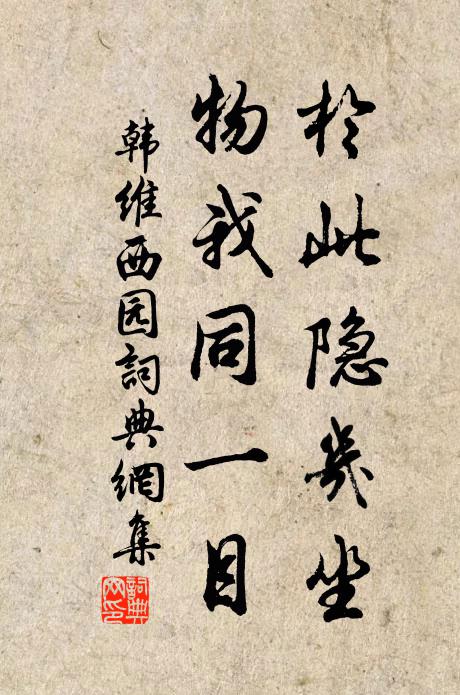 於此隐幾坐
物我同一目
韩维西园詞典網集
詞典